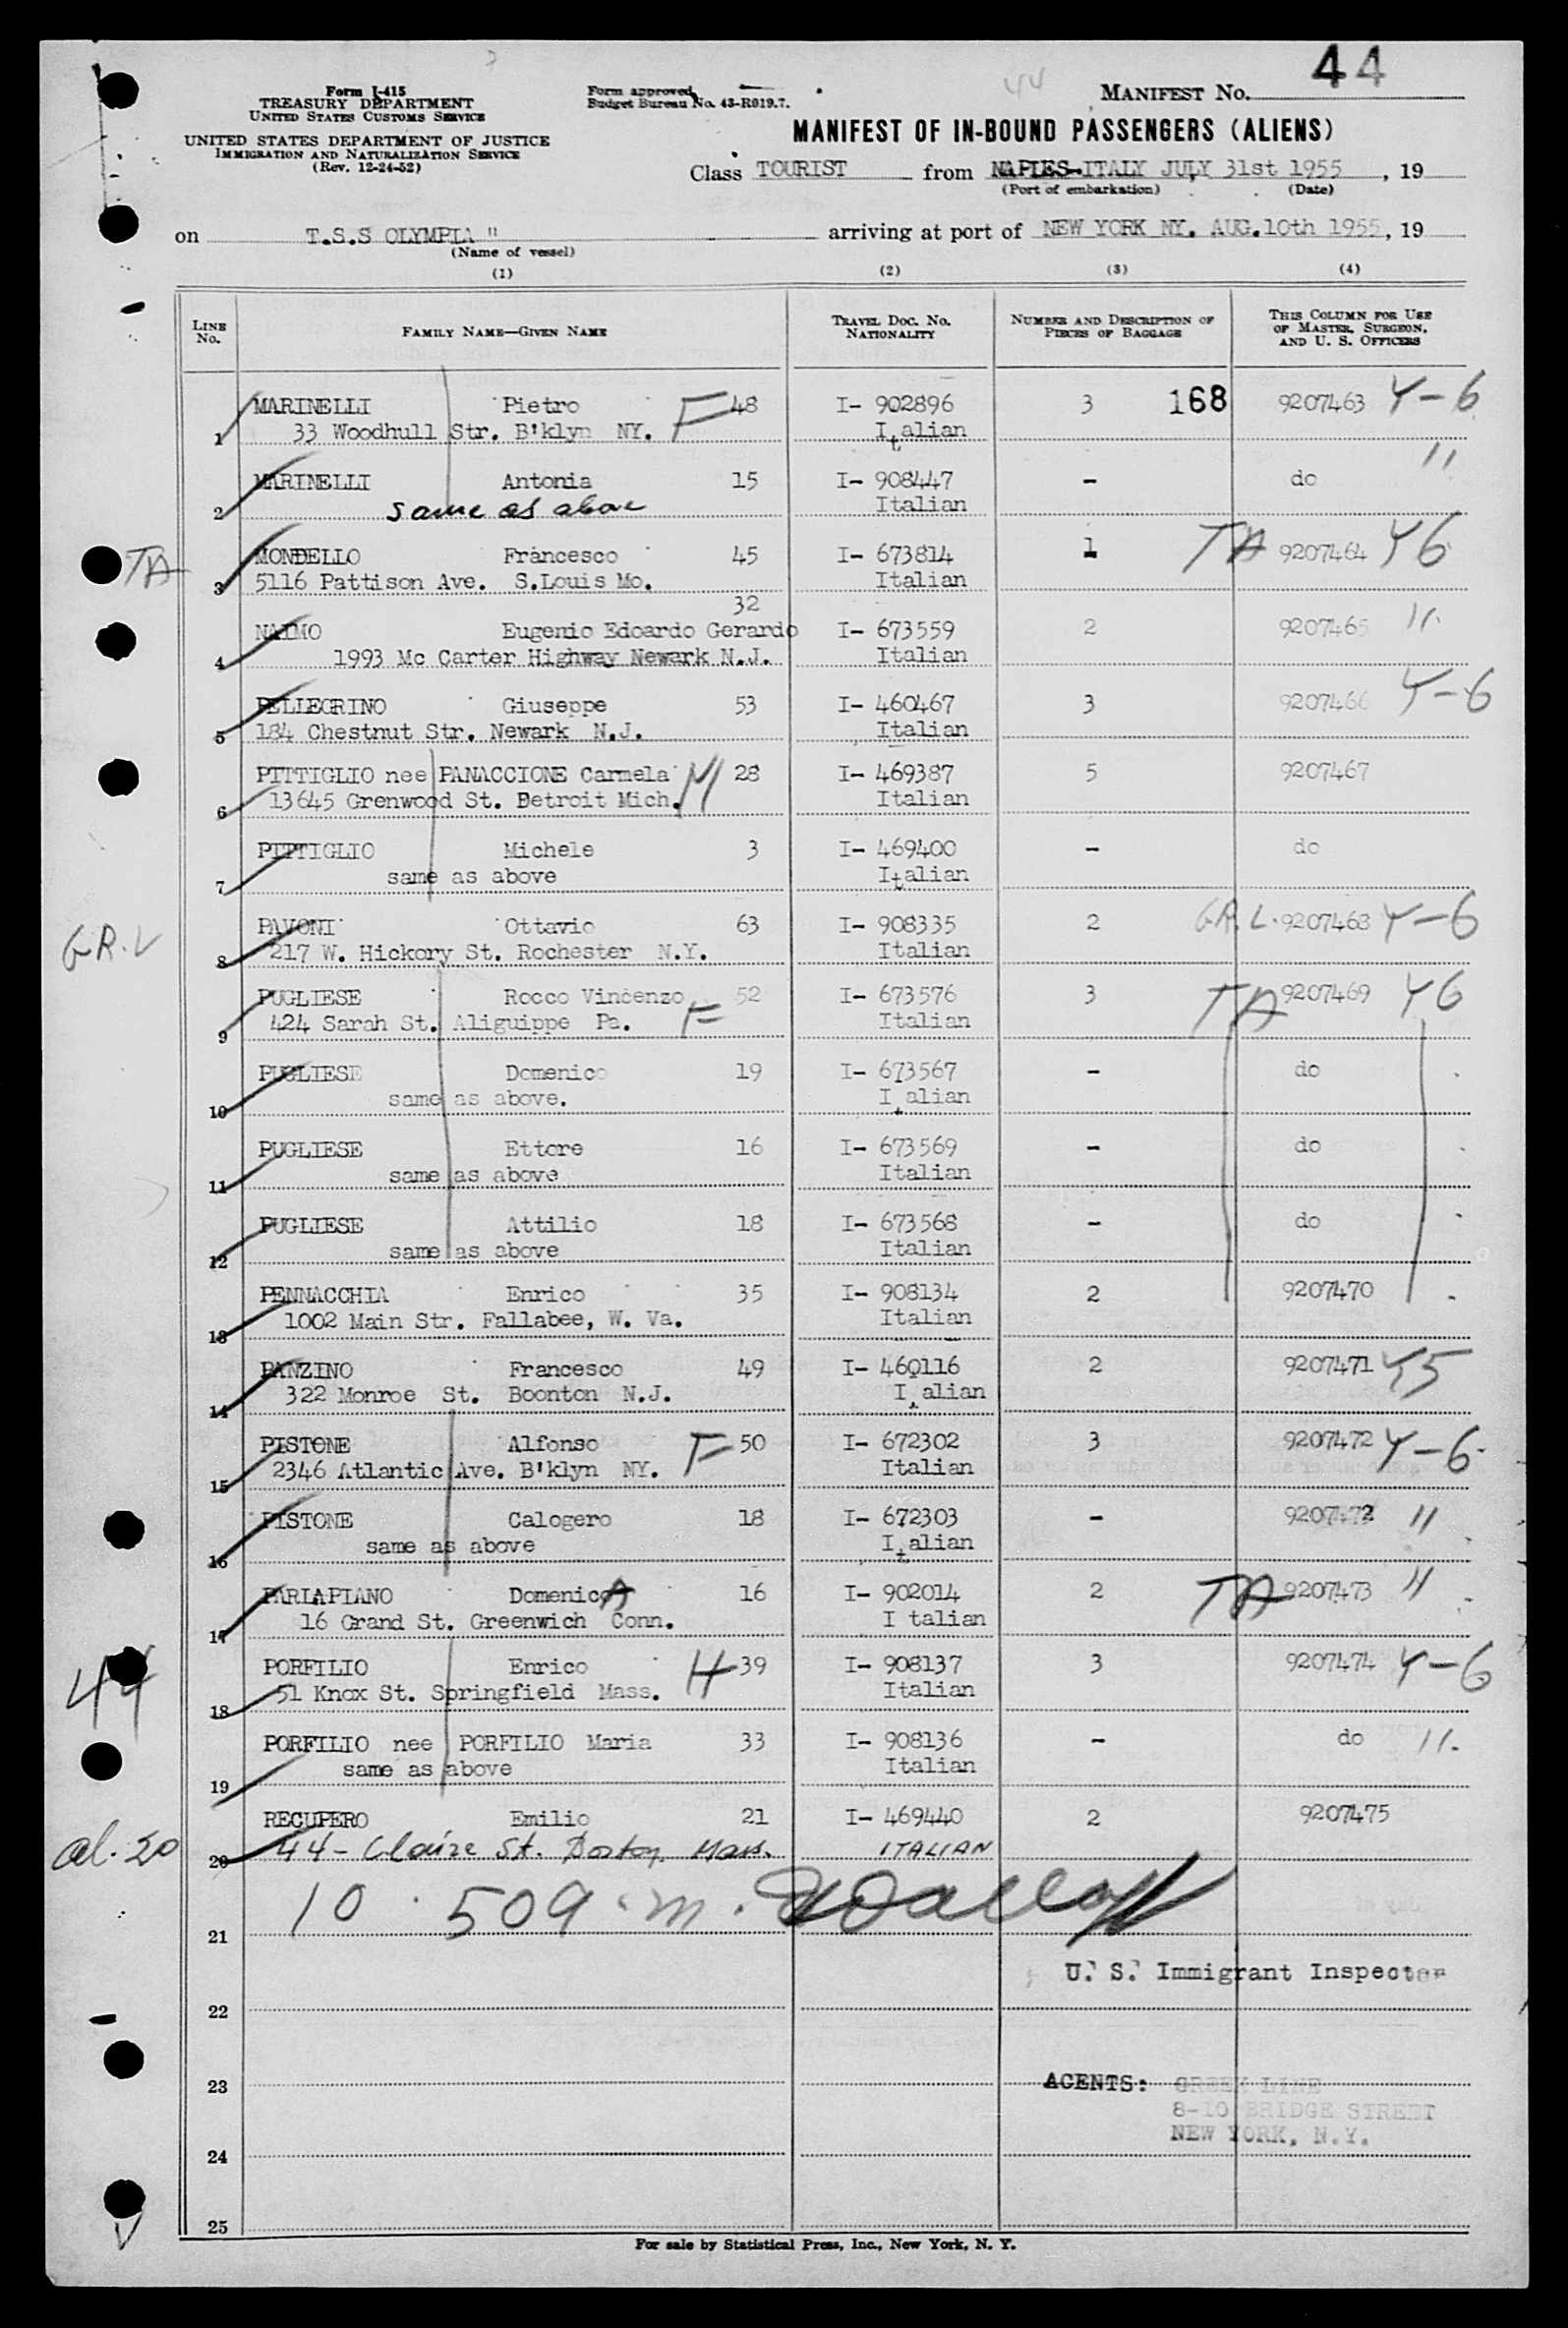 44
44
Form I-415
TREASURY DEPARTMENT
UNITED STATES CUSTOMS SERVICE
UNITED STATES DEPARTMENT OF JUSTICE
IMMIGRATION AND NATURALIZATION SERVICE
(Rev. 12-24-52)
Form approved.
Budget Bureau No. 43-R019.7.
MANIFEST NO.
MANIFEST OF IN-BOUND PASSENGERS (ALIENS)
Class TOURIST from NAPLES-ITALY JULY 31st 1955, 19
(Port of embarkation) (Date)
on T.S.S OLYMPIA " arriving at port of NEW YORK NY. AUG.10th 1955, 19
(Name of vessel)
(1) (2) (3) (4)
LINE No. FAMILY NAME—GIVEN NAME TRAVEL DOC. NO. NATIONALITY NUMBER AND DESCRIPTION OF PIECES OF BAGGAGE THIS COLUMN FOR USE OF MASTER, SURGEON, AND U. S. OFFICERS
MARINELLI Pietro F 48 I- 902896 3 168 9207463 Y-6
1 33 Woodhull Str. B'klyn NY. Italian
MARINELLI Antonia 15 I- 908447 - do 11
2 same as above Italian
TA MONDELLO Francesco 45 I- 673814 1 TA 9207464 Y6
3 5116 Pattison Ave. S.Louis Mo. Italian
32
NAIMO Eugenio Edoardo Gerardo I- 673559 2 9207465 11.
4 1993 Mc Carter Highway Newark N.J. Italian
PELLEGRINO Giuseppe 53 I- 460467 3 9207466 Y-6
5 184 Chestnut Str. Newark N.J. Italian
PITTIGLIO nee PANACCIONE Carmela M 28 I- 469387 5 9207467
6 13645 Grenwood St. Detroit Mich. Italian
PITTIGLIO Michele 3 I- 469400 - do
7 same as above Italian
GR.L PAVONI Ottavio 63 I- 908335 2 GR.L. 9207468 Y-6
8 217 W. Hickory St. Rochester N.Y. Italian
PUGLIESE Rocco Vincenzo 52 I- 673576 3 TA 9207469 Y6
9 424 Sarah St. Aliguippe Pa. F Italian
PUGLIESE Domenico 19 I- 673567 - do
10 same as above. Italian
PUGLIESE Ettore 16 I- 673569 - do
11 same as above Italian
PUGLIESE Attilio 18 I- 673568 - do
12 same as above Italian
PENNACCHIA Enrico 35 I- 908134 2 9207470
13 1002 Main Str. Fallabee, W. Va. Italian
PANZINO Francesco 49 I- 460116 2 9207471 Y5
14 322 Monroe St. Boonton N.J. Italian
PISTONE Alfonso F 50 I- 672302 3 9207472 Y-6
15 2346 Atlantic Ave. B'klyn NY. Italian
PISTONE Calogero 18 I- 672303 - 9207472 11
16 same as above Italian
PARLAPIANO DomenicA 16 I- 902014 2 TA 9207473 11
17 16 Grand St. Greenwich Conn. I talian
44 PORFILIO Enrico H 39 I- 908137 3 9207474 Y-6
18 51 Knox St. Springfield Mass. Italian
PORFILIO nee PORFILIO Maria 33 I- 908136 - do 11.
19 same as above Italian
RECUPERO Emilio 21 I- 469440 2 9207475
al. 20 20 44- Claire St. Boston Mass. ITALIAN
10 . 509
21
U. S. Immigrant Inspector
22
23 AGENTS: GREEK LINE
8-10 BRIDGE STREET
NEW YORK, N.Y.
24
25
For sale by Statistical Press, Inc., New York, N. Y.